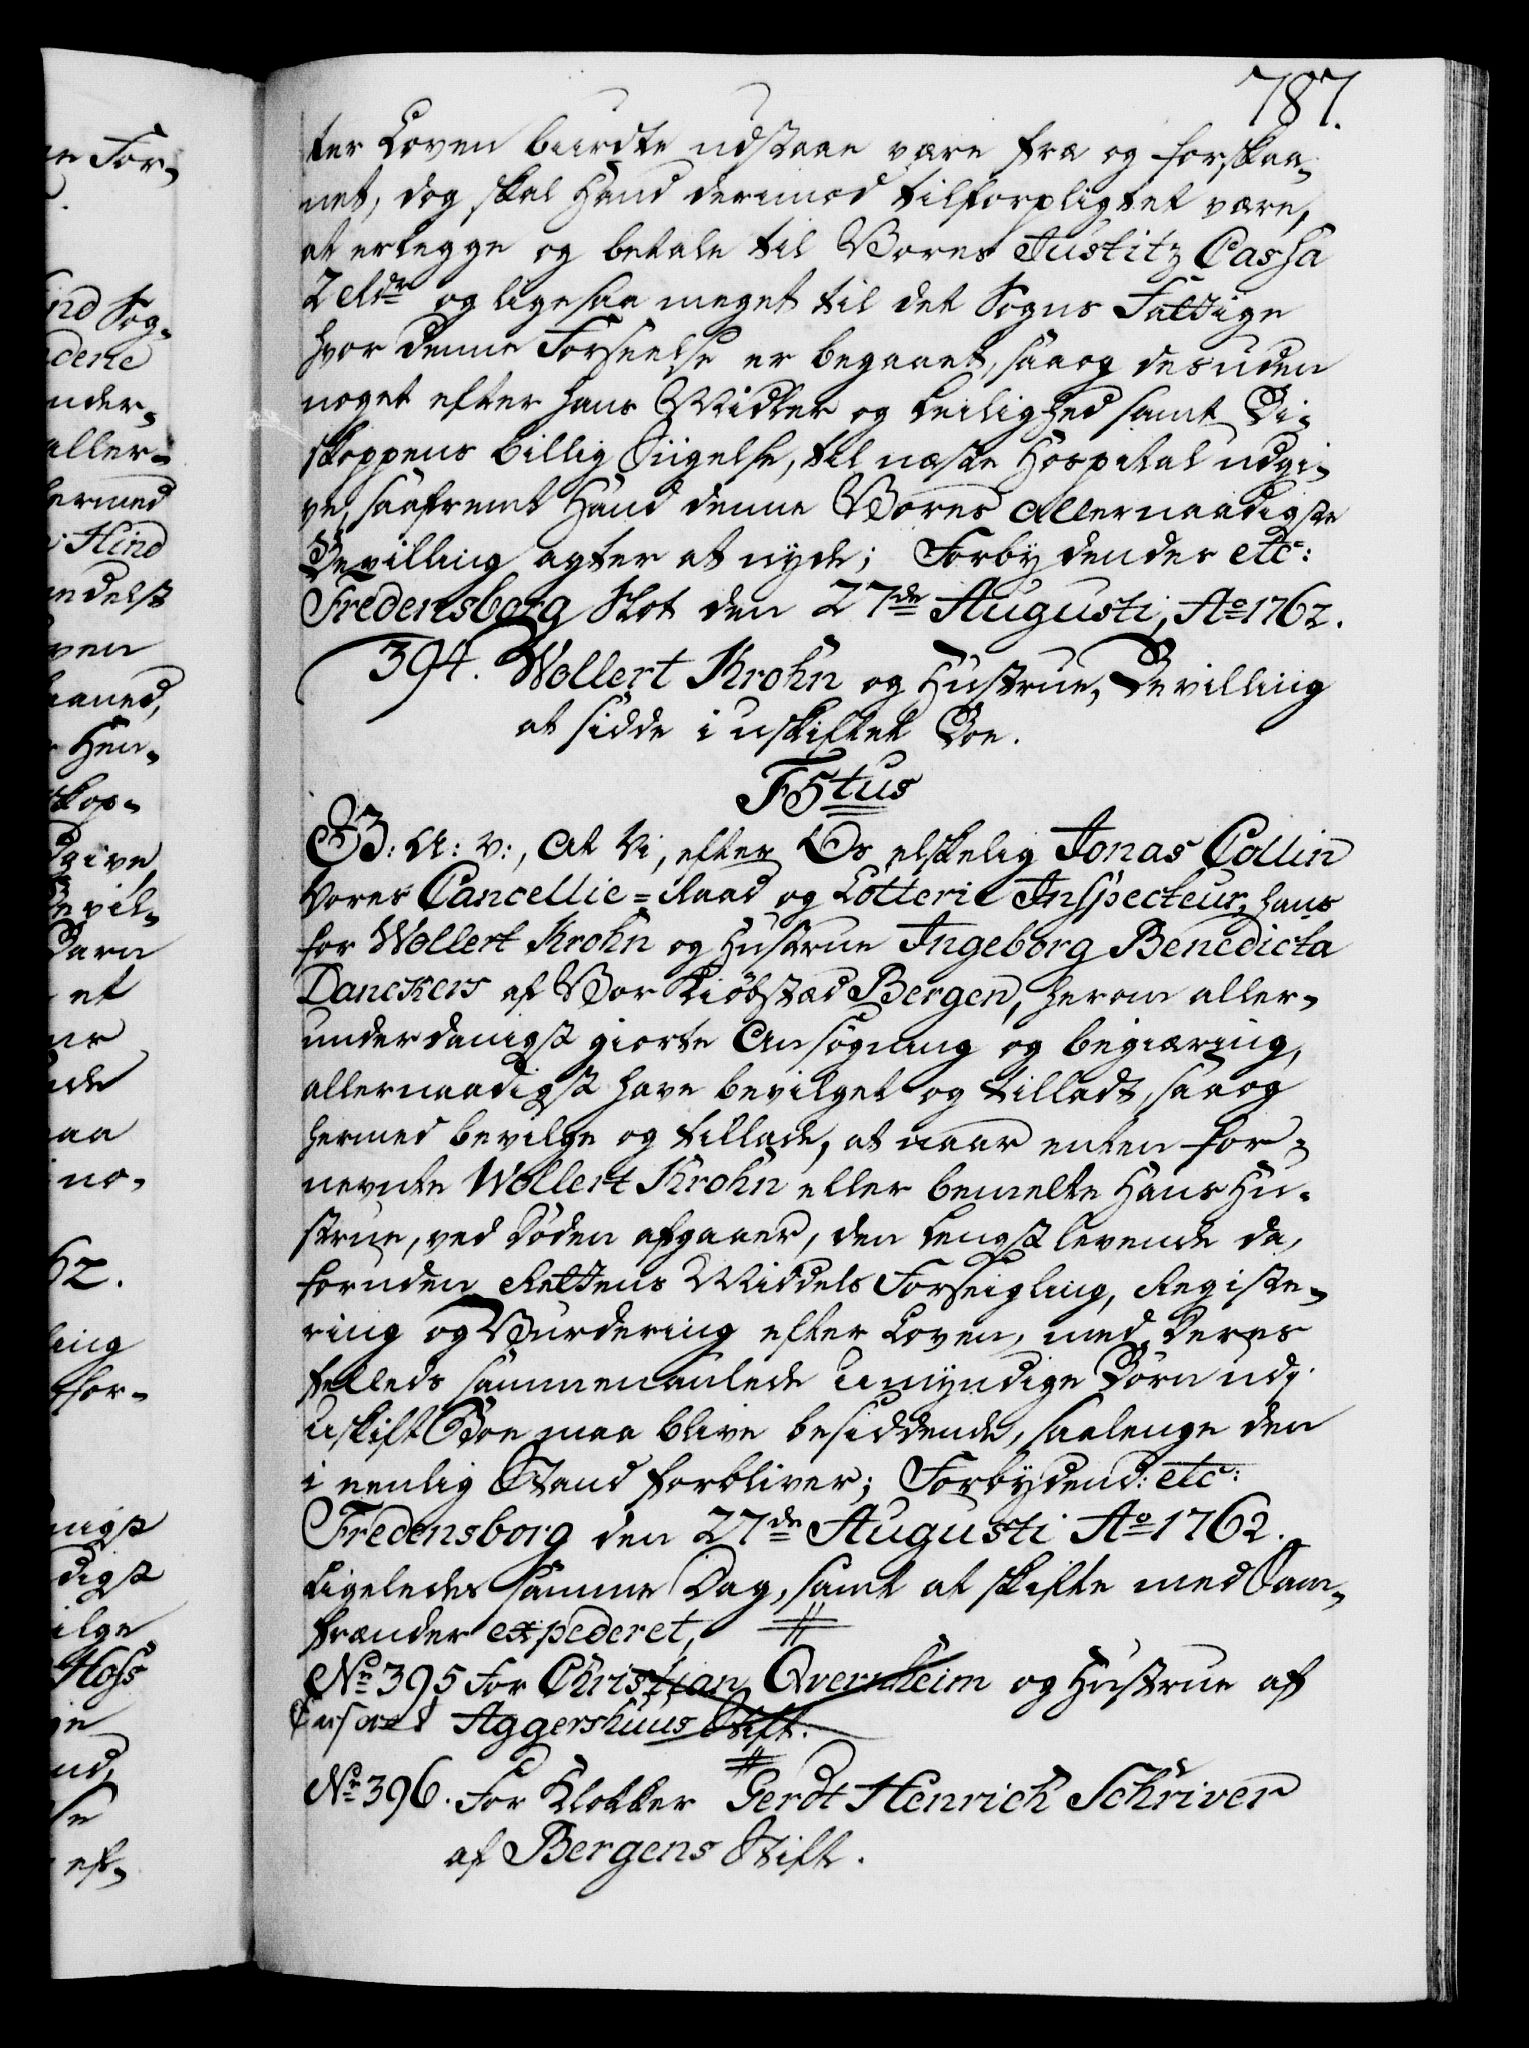 787.
ter Loven burdte udstaae være fra og forskaa-
net, dog skal Hand derimod tilforpligtet være,
at erlegge og betale til Vores Justitz Cassa
2 Rdr og ligesaa meget til det Sogns Fattige
hvor denne Forseelse er begaaet, saaog desuden
noget efter hans Midler og Leilighed samt Bi-
skoppens billig Sigelse, til næste Hospital udgi-
ve, saafremt Hand denne Vores allernaadigste
Bevilling agter at nyde; Forbydendes etc:
Fredensborg Slot den 27de Augusti, Ao 1762.
394. Wollert Krohn og Hustrue, Bevilling
at sidde i uskiftet Boe.
F5tus
G: A: V:, At Vi, efter Os elskelig Jonas Collin
Vores Cancellie-Raad og Lotterie Inspecteur, hans
for Wollert Krohn og Hustrue Ingeborg Benedicta
Danckers af Vor Kiøbstæd Bergen, herom aller-
underdanigst giorte Ansøgning og begiæring,
allernaadigst have bevilget og tilladt, saaog
hermed bevilge og tillade, at naar enten for-
nevnte Wollert Krohn eller bemelte Hans Hu-
strue, ved Døden afgaaer, den Lengstlevende da,
foruden Rettens Middels Forseigling, Registe-
ring og Vurdering efter Loven, med Deres
felleds sammenaulede Umyndige Børn udj
Uskift Boe maa blive besiddende, saalenge den
i eenlig Stand forbliver; Forbydend: etc:
Fredensborg den 27de Augusti Ao 1762.
Ligeledes samme Dag, samt at skifte med Sam-
frænder expederet,
No 395 for Christian Qvernheim og Hustrue af
Aggershuus Stift.
No 396. for Klokker Gerdt Henrich Schriver
af Bergens Stift.